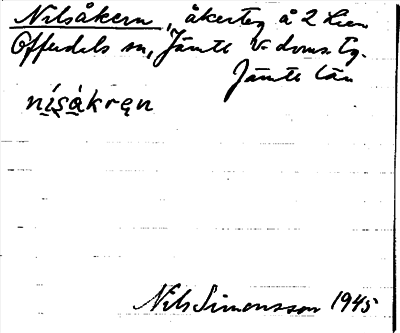 Nilsåkern, åkerteg å 2 Lien
Offerdals sn, Jämtl V. doms. tg.
Jämtl. län
nísåkręn
Nils Simonsson 1945